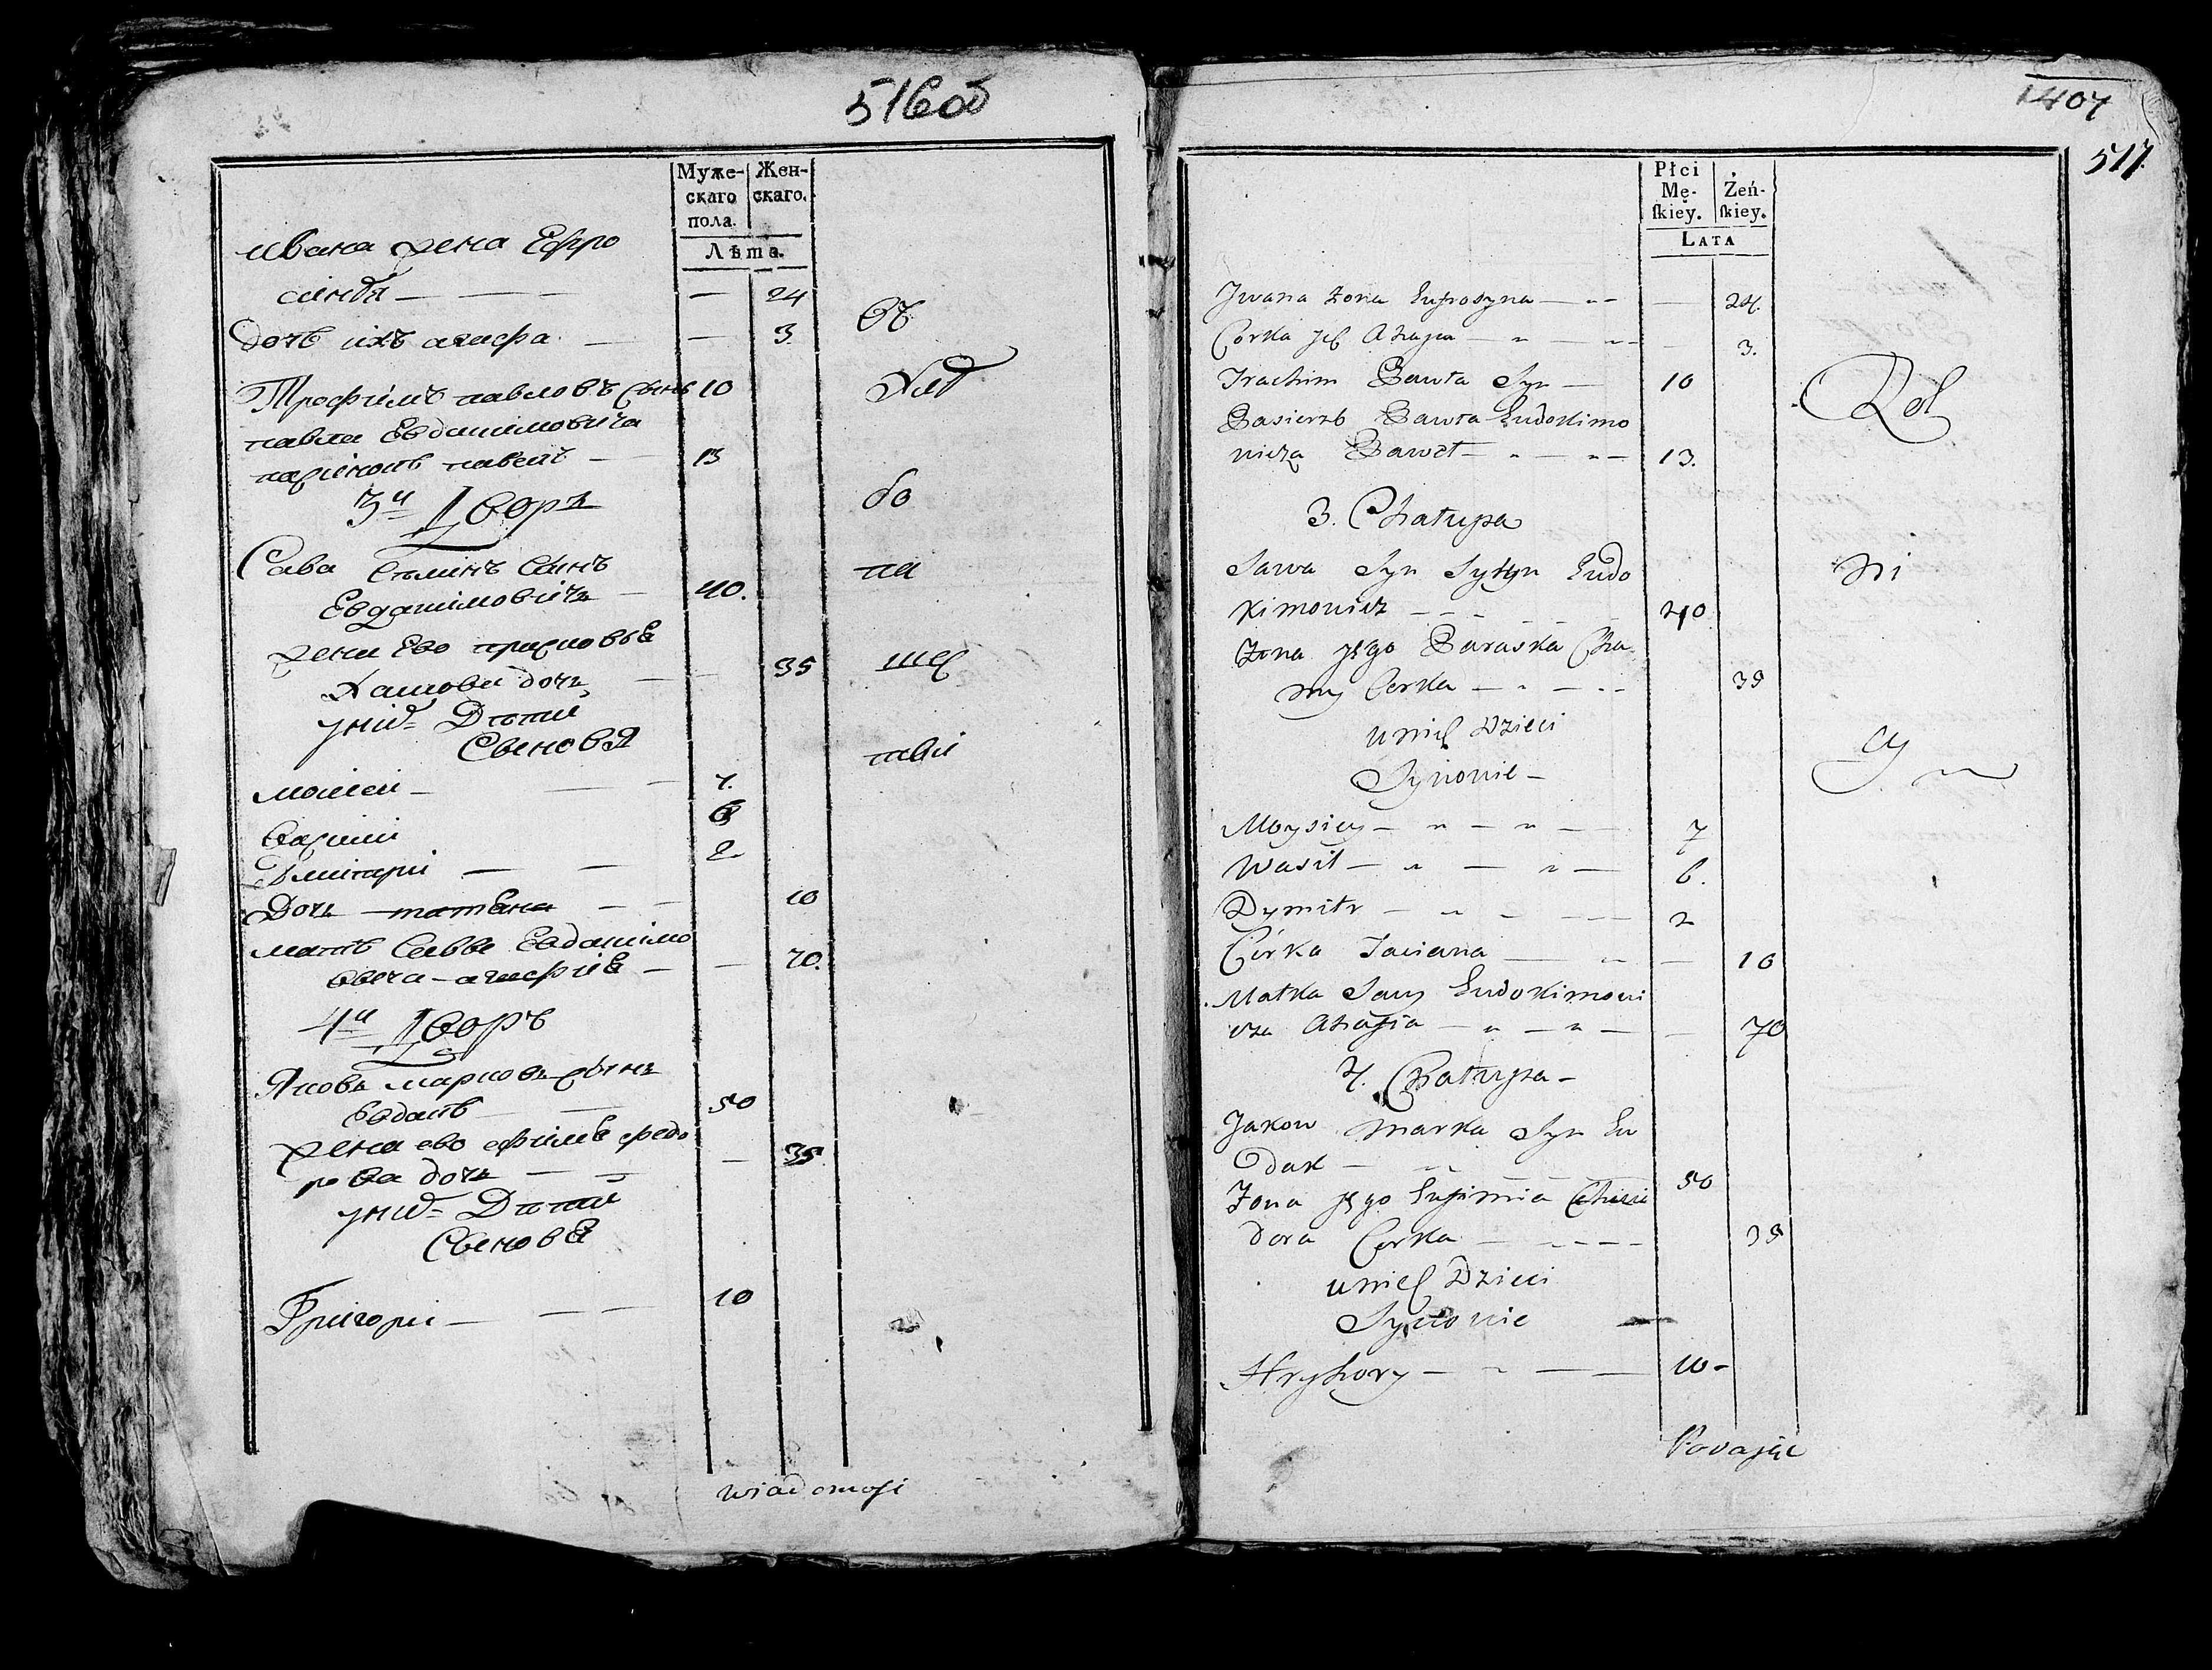 516об
Муже-
скаго
пола.
Жен-
скаго.
Лѣта.
Ивана жена Ефро
синья — 24
дочь ихъ агафа — 3
Трофимъ павловъ сынъ 10
павла Евдакимовича
пасынокъ павелъ — 13
3й Дворъ
Сава сынъ
Евдакимовичъ — 40.
жена Ево прасковья
дочь — 35
у них Дѣти
Сыновья
моисеи — 7.
васили 6
Дмитри — 2
Дочь татьяна — 10
мать Саввы Евдакимо
вича агафия — 70.
4й Дворъ
Яковъ марковъ сынъ
Евдакъ 50
жена ево ефимья федо
рова дочь — 35
у них Дѣти
Сыновья
Григори — 10
Хлѣ
бо
па
шес
wiadomośi
1407
517.
Płci
Mę-
ſkiey.
Żeń-
ſkiey.
LATA
Jwana Zona Eufrosyna — 24.
Corka Ich Ahafia — 3.
Trachim Pawła Syn — 10
Pasierzb Pawła Eudokimo
wicza Paweł — 13.
3. Chałupa
Sawa Syn Eudo
kimowicz — 40
Zona jego Paraska Cho
my Corka — 35
u nich Dzieci
Synowie —
Moysiey — 7
Wasil — 6.
Dymitr — 2
Córka Taciana — 10
Matka Sawy Eudokimowi
cza Ahafia — 70
4. Chałupa —
Jakow Marka Syn Eu
dak — 50
Zona jego Eufimia
dora Corka — 35
u nich Dzieci
Synowie
Hryhory — 10 —
Rol
ni
cy